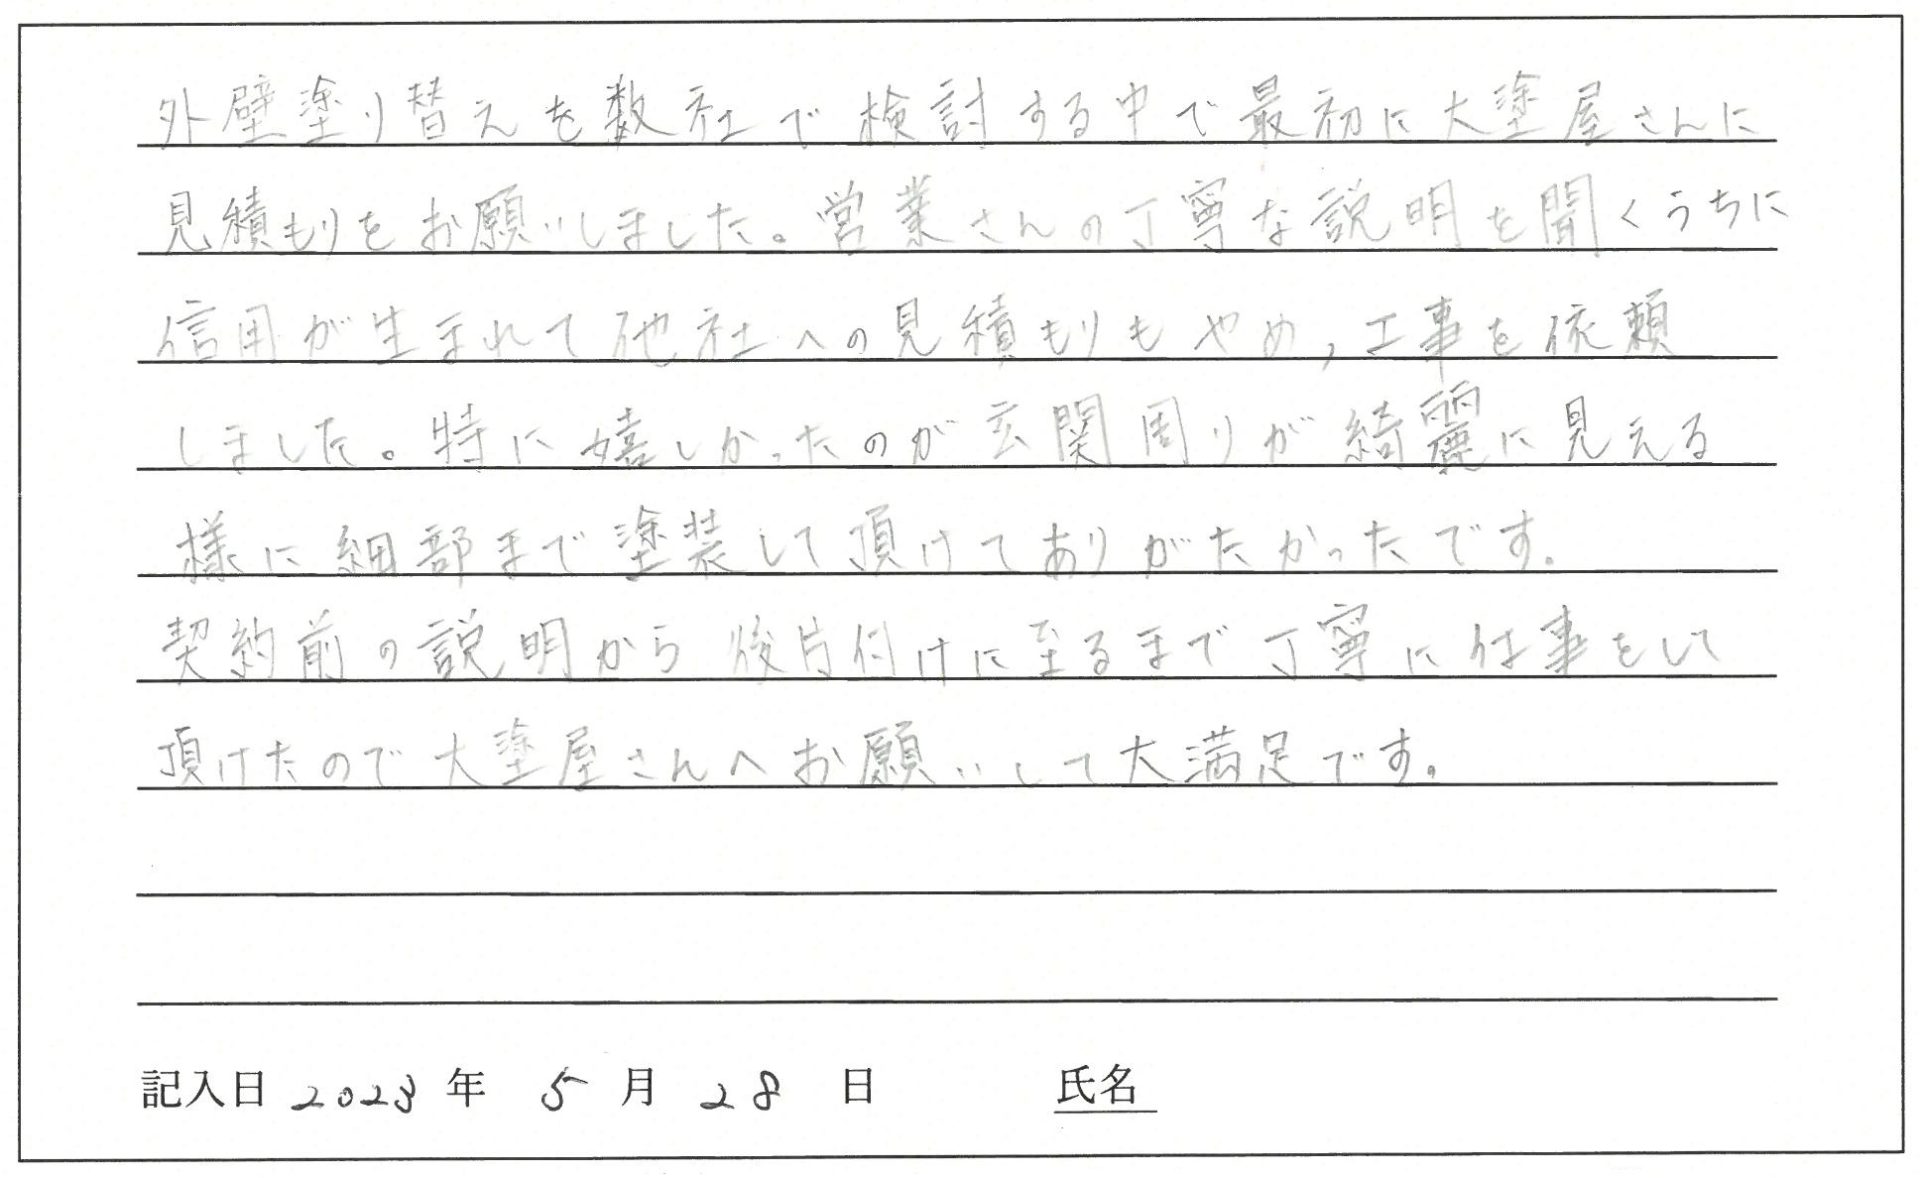 外壁塗り替えを数社で検討する中で最初に大塗屋さんに
見積もりをお願いしました。営業さんの丁寧な説明を聞くうちに
信用が生まれて他社への見積もりもやめ,工事を依頼
しました。特に嬉しかったのが玄関周りが綺麗に見える
様に細部まで塗装して頂けてありがたかったです。
契約前の説明から後片付けに至るまで丁寧に仕事をして
頂けたので大塗屋さんへお願いして大満足です。
記入日 2023 年 5 月 28 日 氏名